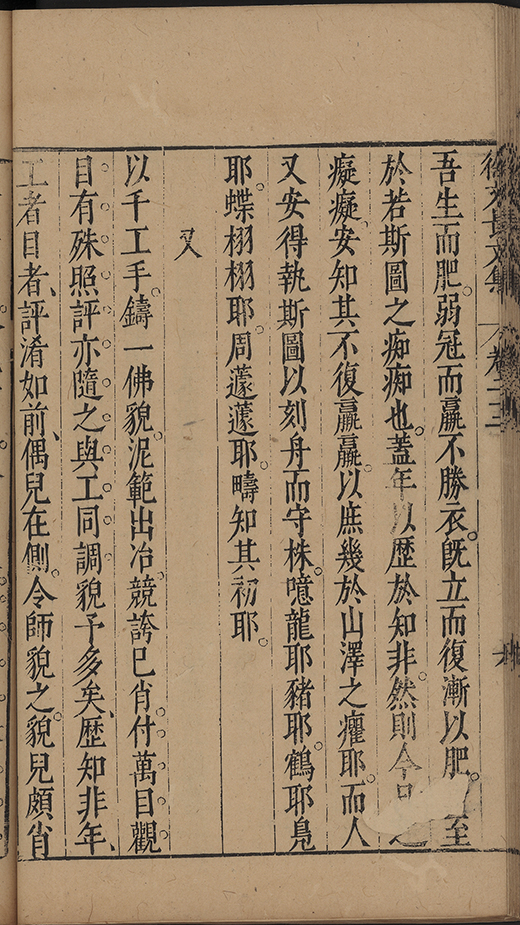 徐文長文集 卷二十二
吾生而肥。弱冠而羸不勝衣。旣立而復漸以肥。至
於若斯圖之痴痴也。蓋年以歷於知非。然則今日之
癡癡、安知其不復羸羸。以庶幾於山澤之癯耶。而人
又安得執斯圖以刻舟而守株。噫龍耶豬耶。鶴耶鳧
耶。蝶栩栩耶。周蘧蘧耶。疇知其初耶。
又
以千工手。鑄一佛貌。泥範出冶。競誇已肖。付萬目觀
目有殊照。評亦隨之。與工同調。貌予多矣、歷知非年、
工者目者、評淆如前、偶兒在側。令師貌之。貌兒頗肖